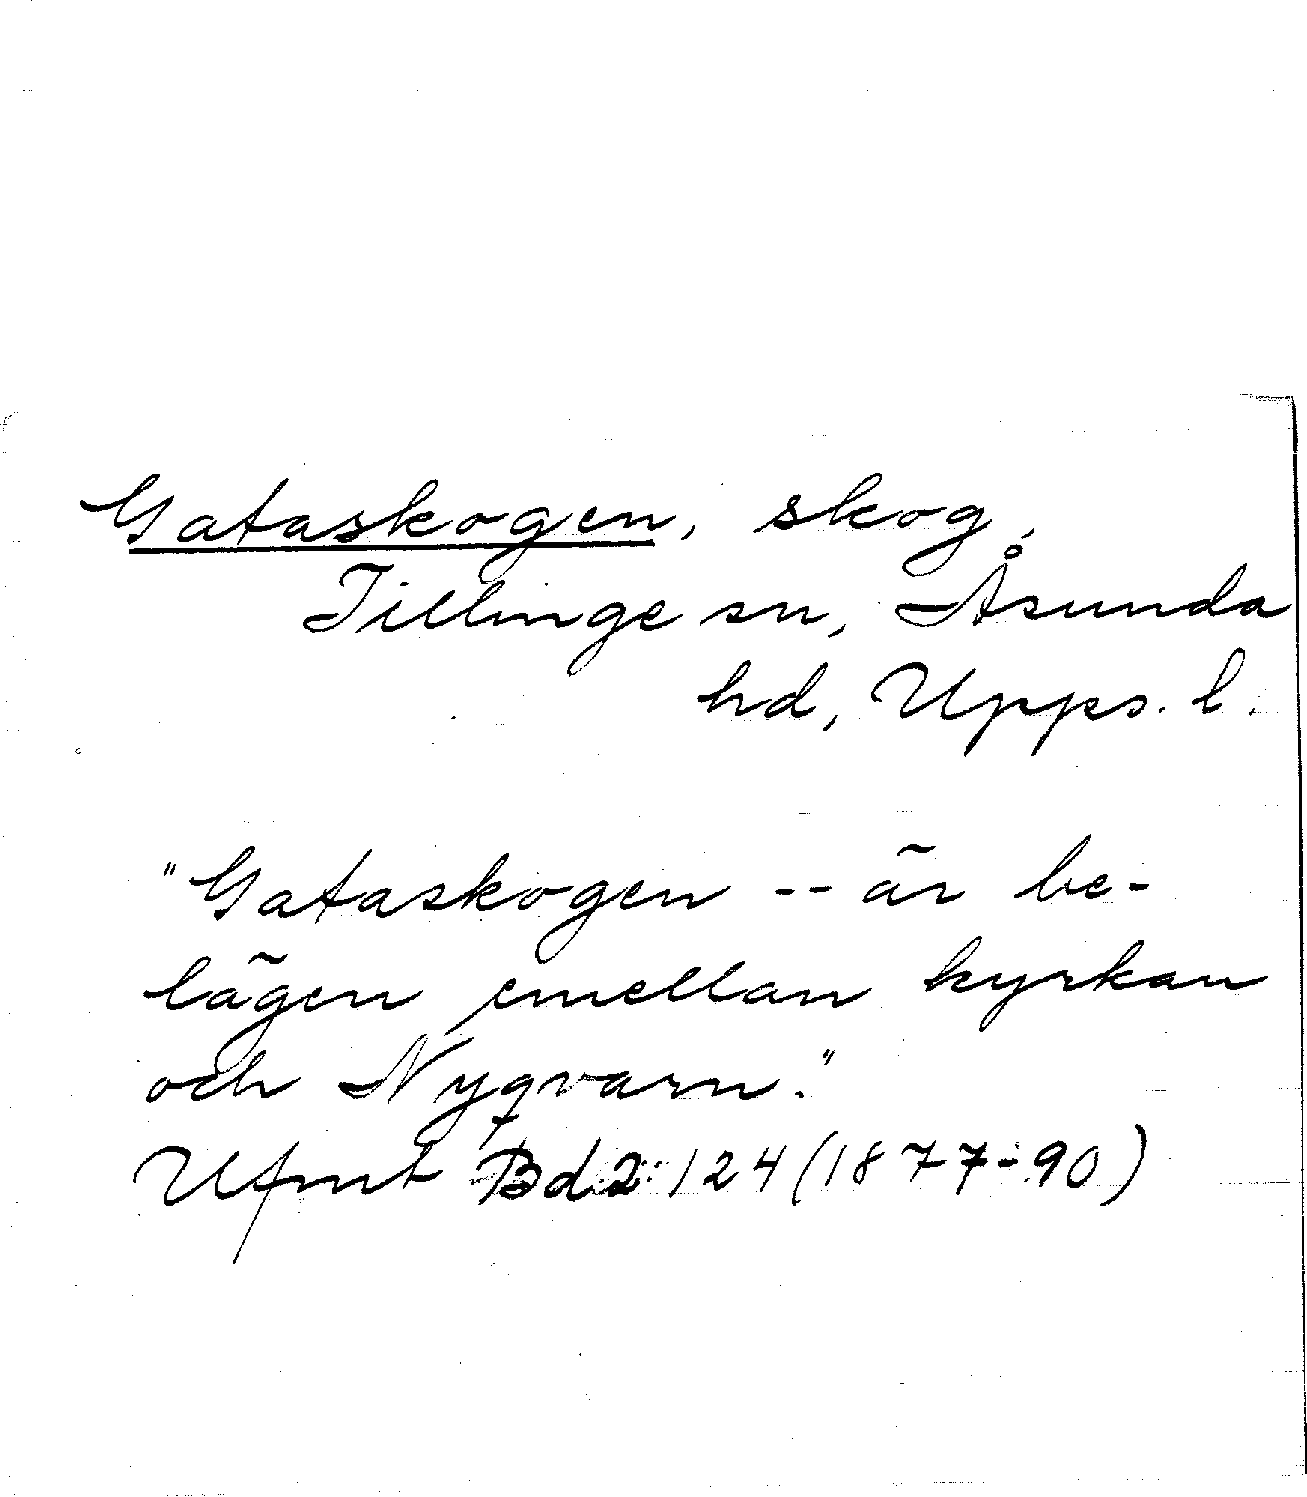 Gataskogen, skog,
Tillinge sn, Åsunda
hd, Upps. l.
"Gataskogen -- är be-
lägen emellan kyrkan
och Nyqvarn."
Ufmt Bd 2:124 (1877-90)